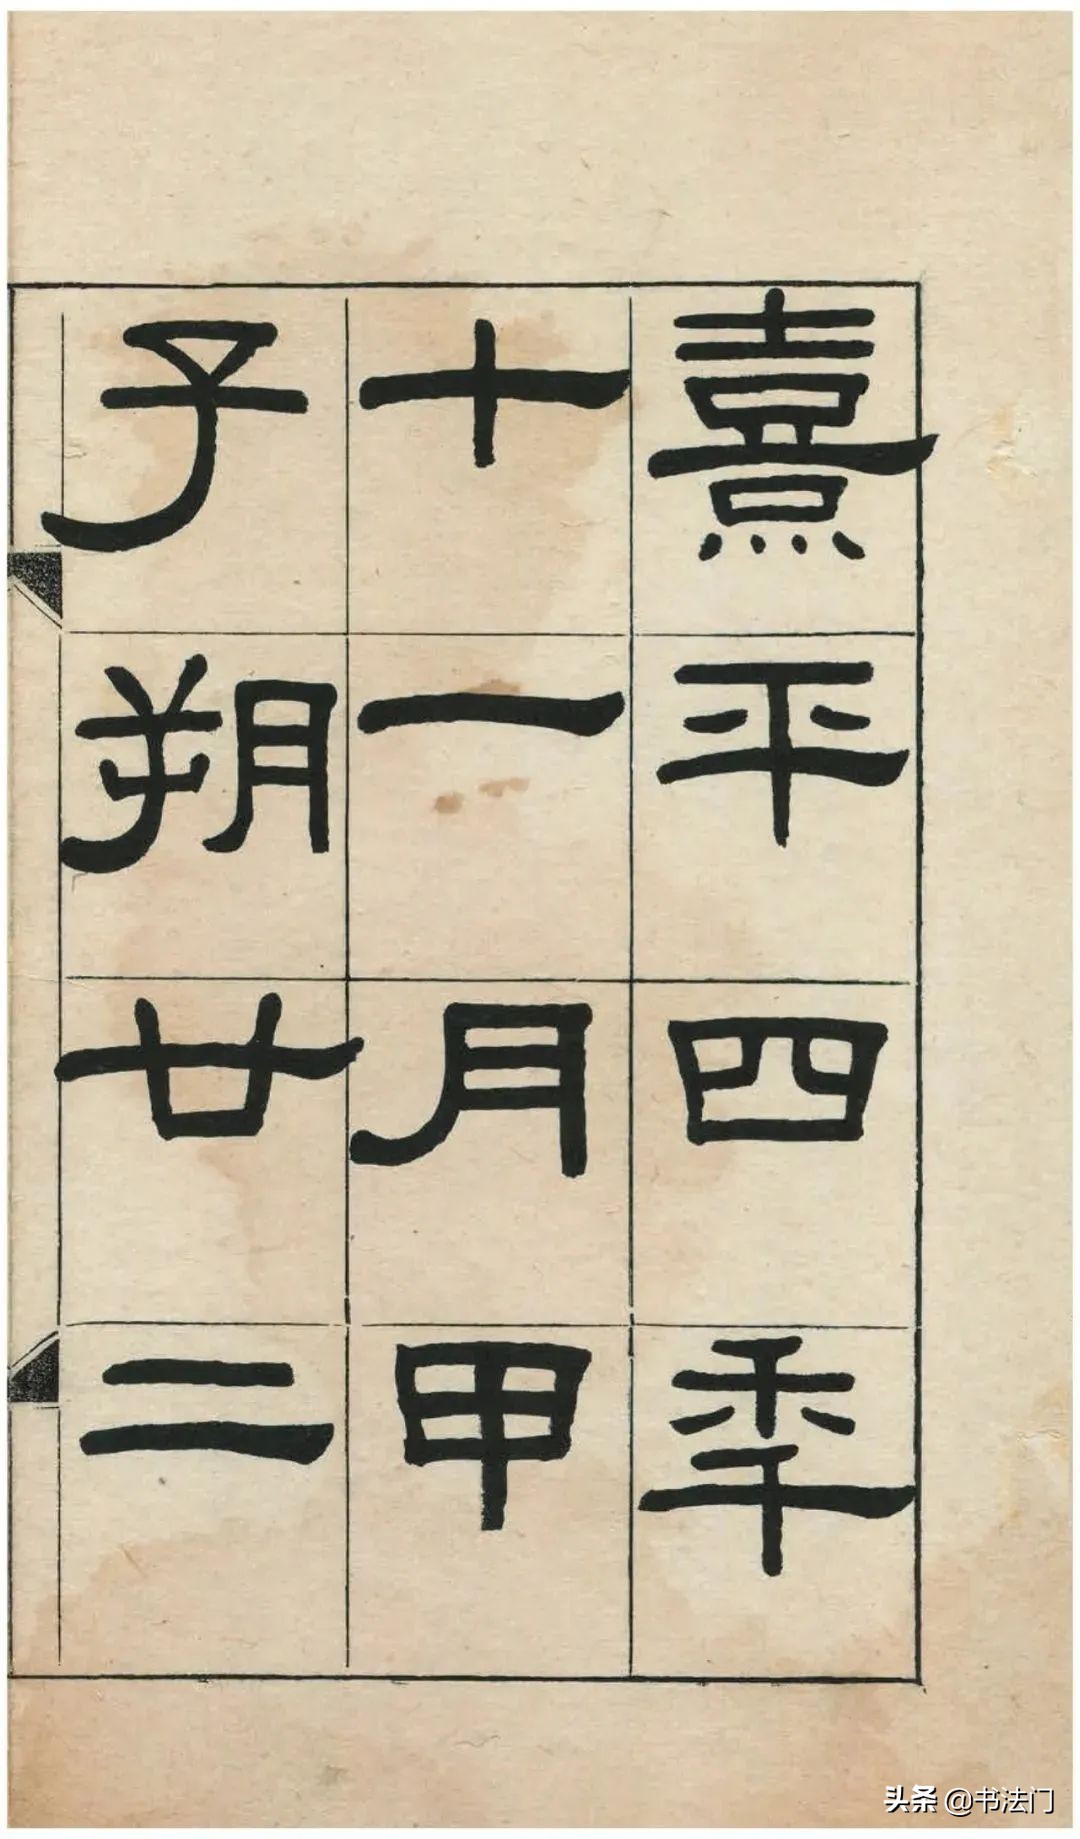 熹平四秊
十一月甲
子朔廿二
头条 @书法门